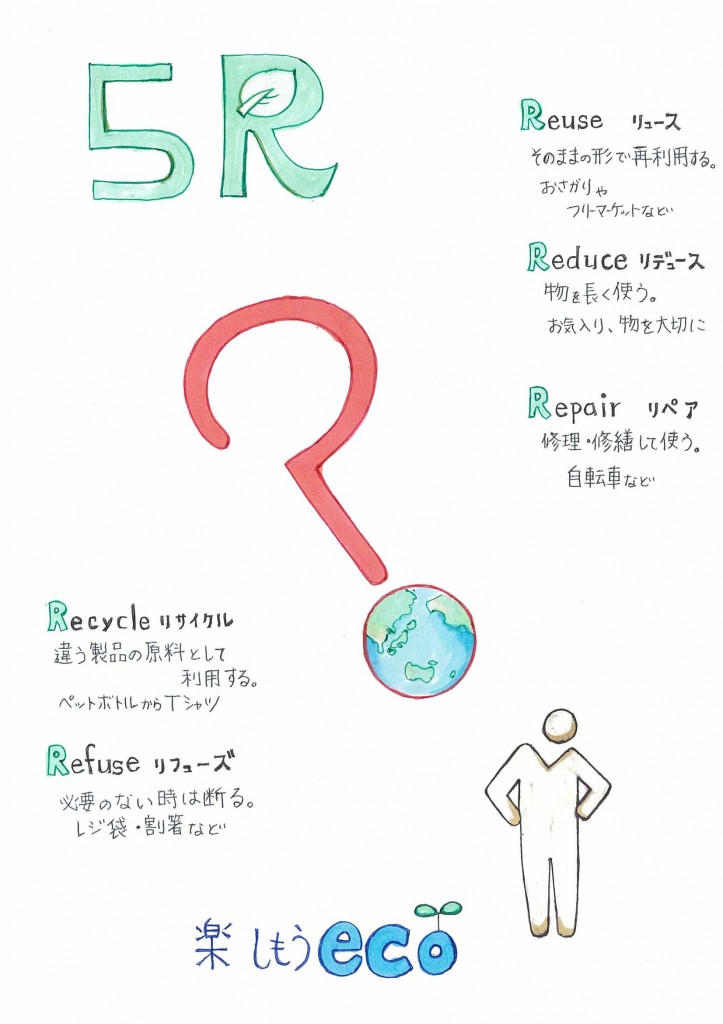 5R
Reuse リユース
そのままの形で再利用する。
おさがりや
フリーマーケットなど
Reduce リデュース
物を長く使う。
お気入り、物を大切に
Repair リペア
修理・修繕して使う。
自転車など
Recycle リサイクル
違う製品の原料として
利用する。
ペットボトルからTシャツ
Refuse リフューズ
必要のない時は断る。
レジ袋・割箸など
楽しもうeco